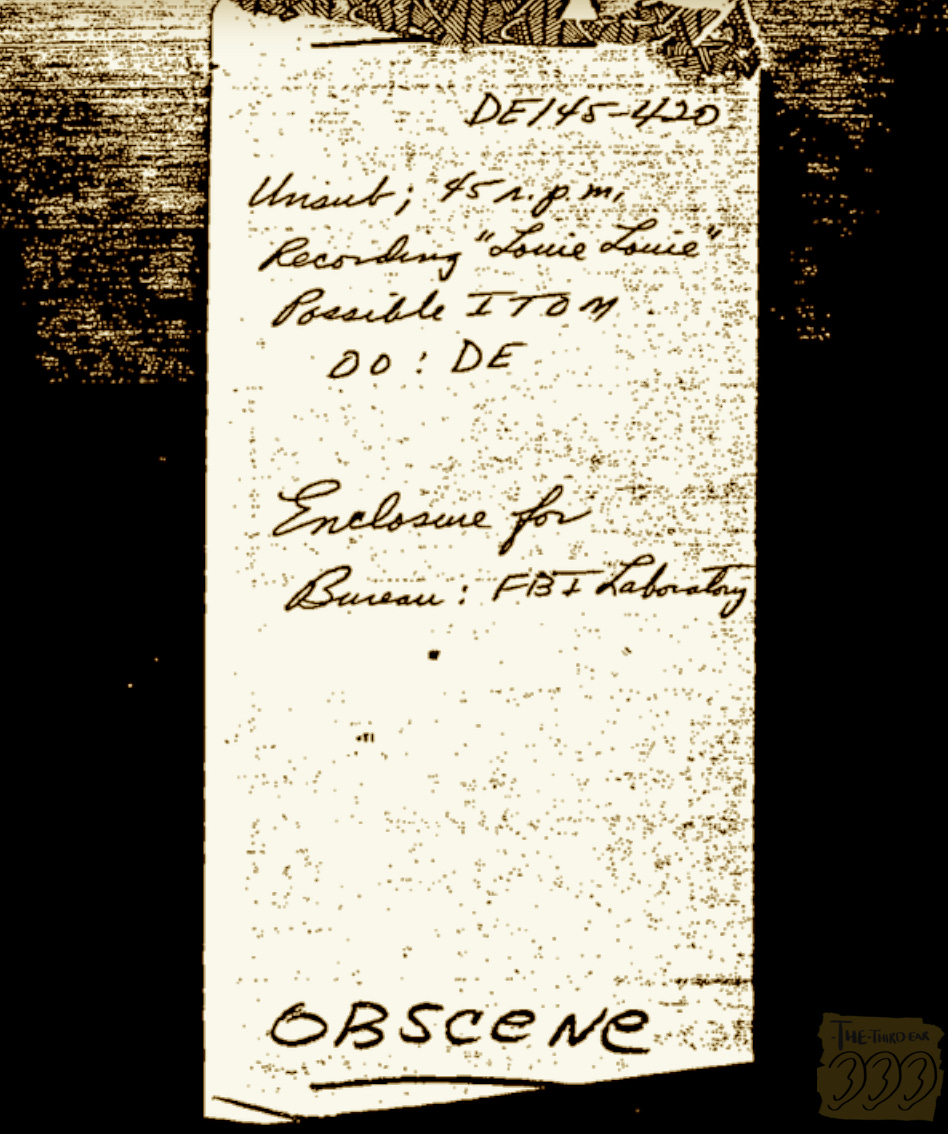 DE 145-420
Unsub; 45 r.p.m.
Recording "Louie Louie"
Possible ITOM
OO: DE
Enclosure for
Bureau: FBI Laboratory
OBSCENE
THE-THIRD EAR
333